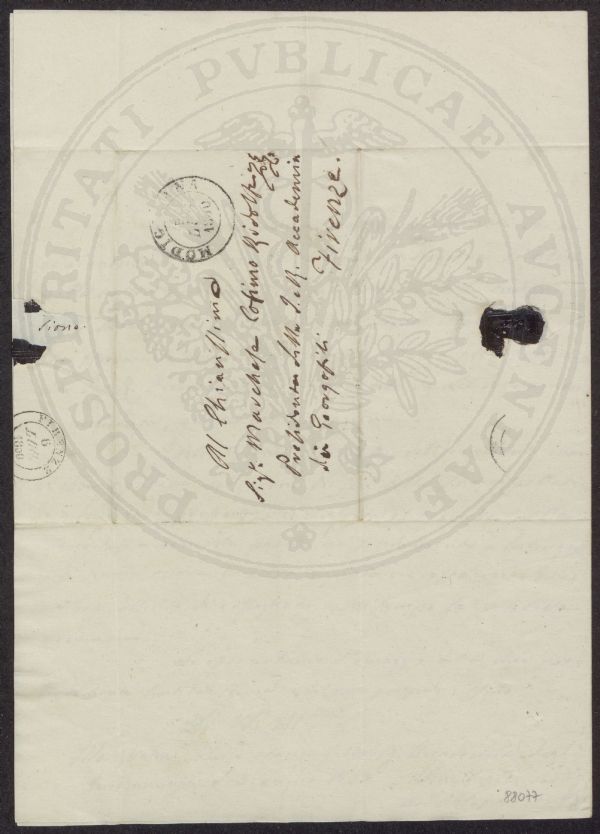 PROSPERITATI PVBLICAE AVGENDAE
MODIGLIANA
Al Chiarissimo
Sigr. Marchese Cosimo Ridolfi
Presidente della I. e R. Accademia
dei Georgofili
Firenze.
FIRENZE
6
88077